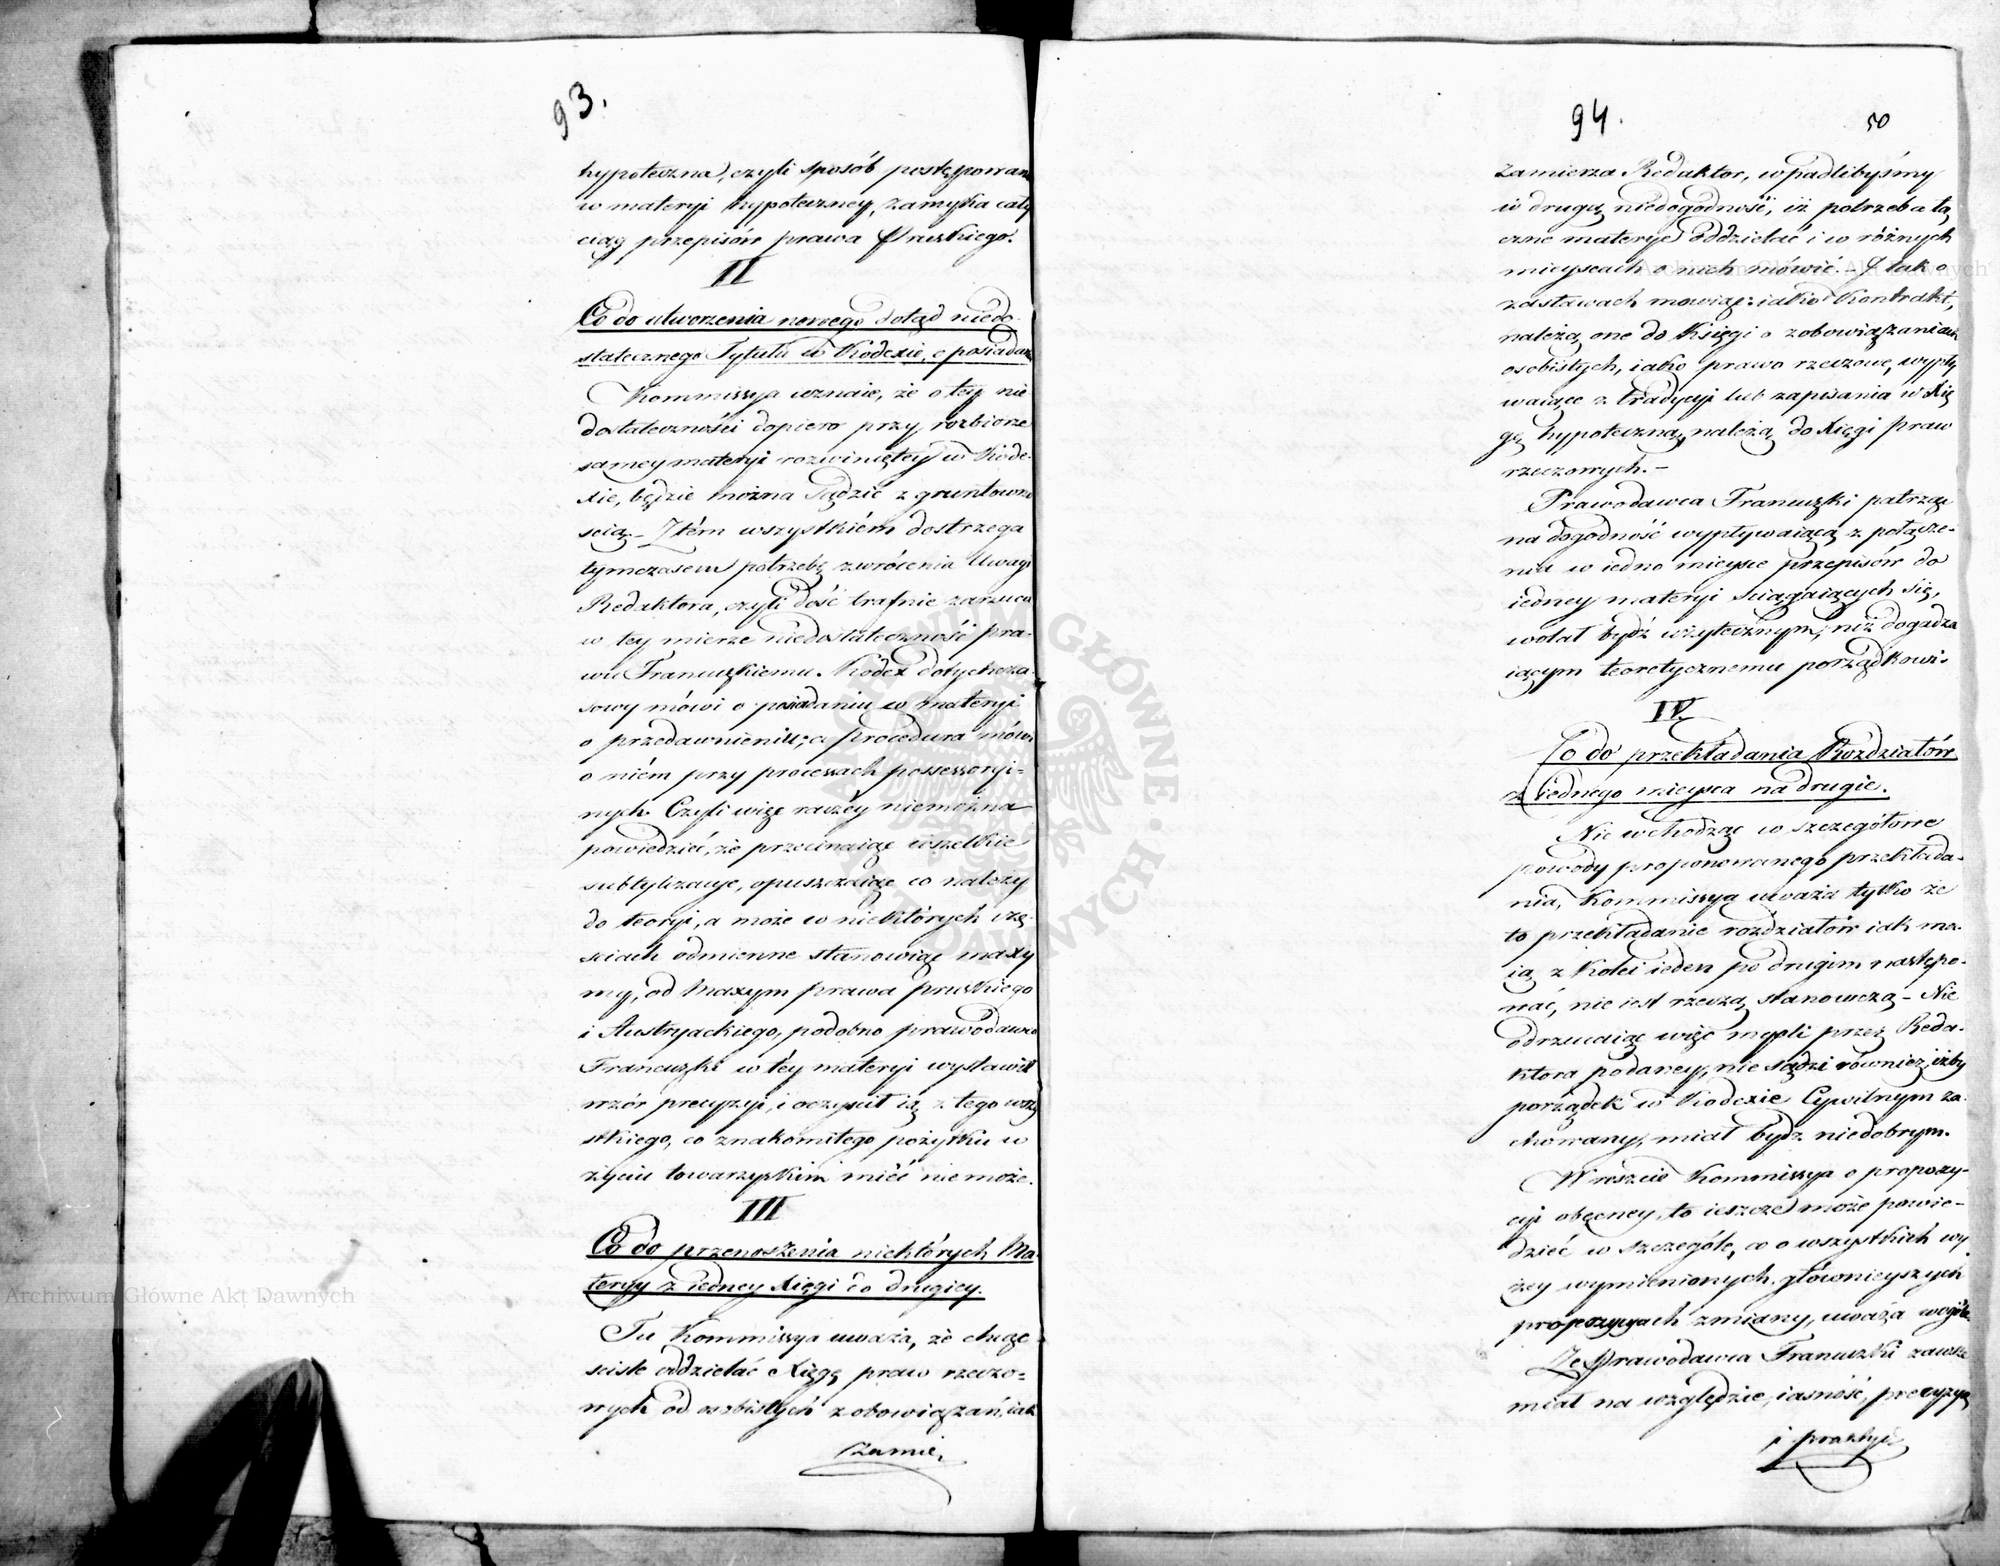 93.
hypoteczna, czyli sposób postępowan
w materyi hypoteczney, zamyka cały
ciąg przepisów prawa Pruskiego.
II
Co do utworzenia nowego dotąd niedo-
statecznego Tytułu w Kodexie, o posiadan
Kommissya uznaie, że o tey nie
dostateczności dopiero przy rozbiorze
samey materyi rozwiniętey w Kode-
xie, będzie można sądzić z gruntowno
scią. – Z tém wszystkiém dostrzega
tymczasem potrzebę zwrócenia Uwagi
Redaktora, czyli dość trafnie zarzuca
w tey mierze niedostateczność pra-
wu Francuzkiemu. Kodex dotychcza-
sowy mówi o posiadaniu w materyi
o przedawnieniu; a procedura mówi
o niém przy processach possessoryi=
nych. Czyli więc raczéy niemożna
powiedzieć, że przecinaiąc wszelkie
subtylizacye, opuszczaiąc co należy
do teoryi, a może w niektórych czę-
sciach odmienne stanowiąc maxy
my, od Maxym prawa pruskiego
i Austryackiego, podobno prawodawca
Francuzki w téy materyi wystawił
wzór precyzyi, i oczyscił ią z tego wszy
stkiego, co znakomitego pożytku w
życiu towarzyskim mieć niemoże.
III
Co do przenoszenia niektórych Ma-
teryy z iedney Xięgi do drugiey.
Tu Kommissya uważa, że chcąc
sciśle oddzielać Xięgę praw rzeczo=
wych od osobistych zobowiązań, iak
zamie,
94. 50
Zamierza Redaktor, wpadlibyśmy
w drugą niedogodność, iż potrzeba łą
czne materye oddzielać i w różnych
mieyscach o nich mówić. – I tak o
zastawach mowiąc: iako Kontrakt,
należą one do Księgi o zobowiązaniach
osobistych, iako prawo rzeczowe, wypły
waiące z tradycyi lub zapisania w Xię
gę hypoteczną, należą do Xięgi praw
rzeczowych. –
Prawodawca Francuzki patrząc
na dogodność wypływaiącą z połącze-
nia w iedno mieysce przepisów do
iedney materyi sciągaiących się,
wolał bydź użytecznym, niż dogadza
iącym teoretycznemu porządkowi.
IV.
Co do przekładania Rozdziałów
z iednego mieysca na drugie.
Nie wchodząc w szczegółowe
powody proponowanego przekłada-
nia, Kommissya uważa tylko że
to przekładanie rozdziałów iak ma-
ią z Kolei ieden po drugim następo-
wać, nie iest rzeczą stanowczą – Nie
odrzucaiąc więc myśli przez Reda-
ktora podaney, nie sądzi również, iżby
porządek w Kodexie Cywilnym za-
chowany, miał bydz niedobrym.
Wreszcie Kommissya o propozy-
cyi obęcney, to ieszcze może powie-
dzieć w szczególe, co o wszystkich wy
żey wymienionych głównieyszych
propozycyach zmiany, uważa wogóle
Że Prawodawca Francuzki zawsze
miał na względzie, iasność, precyzyą
i praktyi
Archiwum Główne Akt Dawnych
Archiwum Główne Akt Dawnych
ARCHIWUM GŁÓWNE · AKT DAWNYCH ·